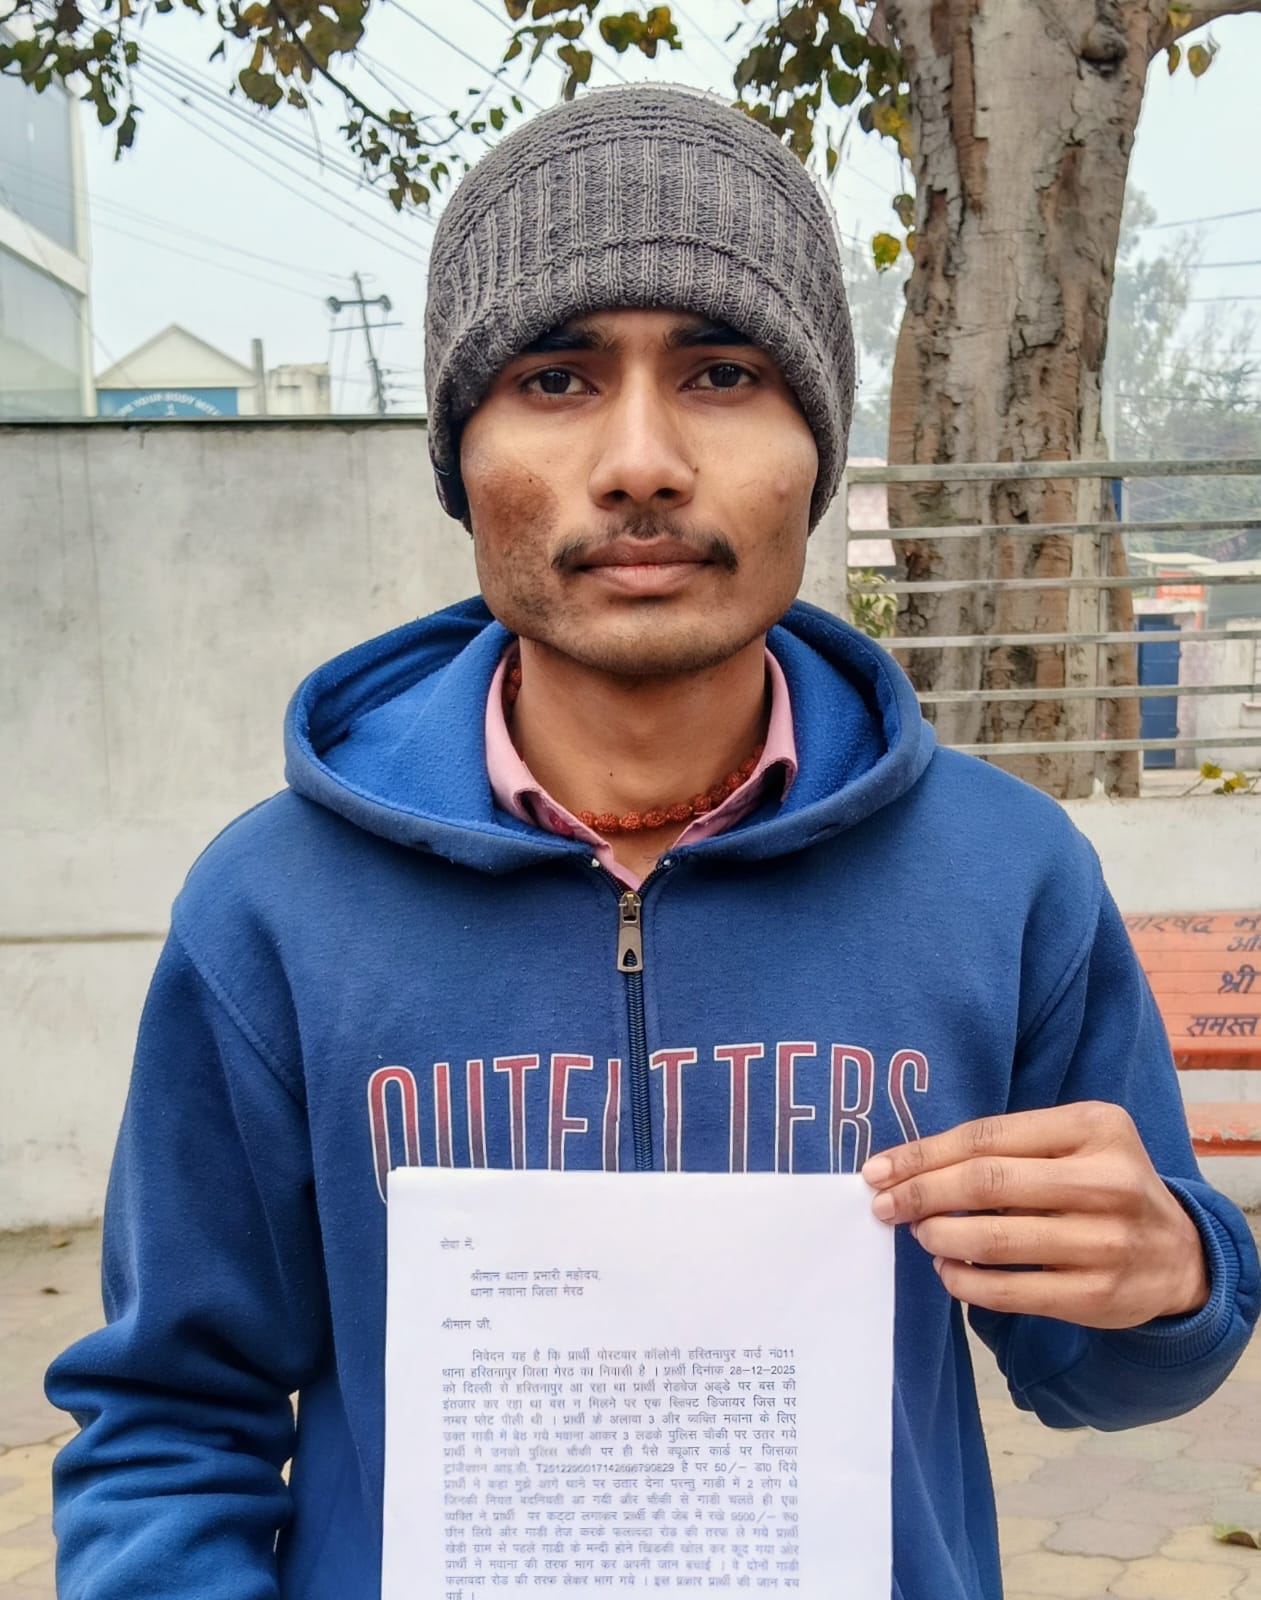 YOUR BODY WITH
OUTFITTERS
परिषद म
श्री
समस्त
सेवा में,
श्रीमान थाना प्रभारी महोदय,
थाना मवाना जिला मेरठ
श्रीमान जी,
निवेदन यह है कि प्रार्थी पोस्टवार कॉलोनी हस्तिनापुर वार्ड नं011
थाना हस्तिनापुर जिला मेरठ का निवासी है । प्रार्थी दिनांक 28-12-2025
को दिल्ली से हस्तिनापुर आ रहा था प्रार्थी रोडवेज अड्डे पर बस की
इंतजार कर रहा था बस न मिलने पर एक स्विफ्ट डिजायर जिस पर
नम्बर प्लेट पीली थी । प्रार्थी के अलावा 3 और व्यक्ति मवाना के लिए
उक्त गाडी में बैठ गये मवाना आकर 3 लडके पुलिस चौकी पर उतर गये
प्रार्थी ने उनको पुलिस चौकी पर ही पैसे क्यूआर कार्ड पर जिसका
ट्रांजैक्शन आई.डी. है पर 50/- डा0 दिये
प्रार्थी ने कहा मुझे आगे थाने पर उतार देना परन्तु गाडी में 2 लोग थे
जिनकी नियत बदनियती आ गयी और चौकी से गाडी चलते ही एक
व्यक्ति ने प्रार्थी पर कट्टा लगाकर प्रार्थी की जेब में रखे 9500/- रू0
छीन लिये और गाडी तेज करके फलावदा रोड की तरफ ले गये प्रार्थी
खेडी ग्राम से पहले गाडी के मन्दी होने खिडकी खोल कर कूद गया और
प्रार्थी ने मवाना की तरफ भाग कर अपनी जान बचाई । वे दोनों गाडी
फलावदा रोड की तरफ लेकर भाग गये । इस प्रकार प्रार्थी की जान बच
पाई ।